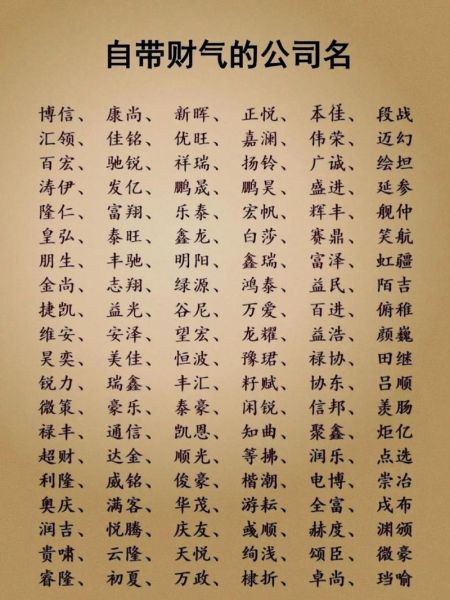 自带财气的公司名
博信、 康尚、 新晖、 正悦、 本佳、 段战
汇领、 佳铭、 优旺、 嘉澜、 伟荣、 迈幻
百宏、 驰锐、 祥瑞、 扬铃、 广诚、 绘坦
涛伊、 发亿、 鹏晟、 鹏昊、 盛进、 延参
隆仁、 富翔、 乐泰、 宏帆、 辉丰、 舰仲
皇弘、 泰旺、 鑫龙、 白莎、 赛鼎、 笑航
朋生、 丰驰、 明阳、 鑫瑞、 富泽、 虹疆
金尚、 志翔、 绿源、 鸿泰、 益民、 陌吉
捷凯、 益光、 谷尼、 万爱、 百进、 俯稚
维安、 安泽、 望宏、 龙耀、 益浩、 颜巍
昊奕、 美佳、 恒波、 豫珺、 禄协、 田继
锐力、 瑞鑫、 丰汇、 籽赋、 协东、 吕顺
微策、 豪乐、 泰豪、 闲锐、 信邦、 羡肠
禄丰、 通信、 凯恩、 知曲、 聚鑫、 炬亿
超财、 达金、 顺光、 等拂、 润乐、 点选
利隆、 威铭、 俊豪、 楷潮、 电博、 崇冶
奥庆、 满客、 华茂、 游耘、 全富、 戌布
润吉、 悦腾、 庆友、 彧顺、 赫度、 渊颁
贵啸、 云隆、 天悦、 绚浅、 颂臣、 微豪
睿隆、 初夏、 万政、 棣折、 卓尚、 珰喻